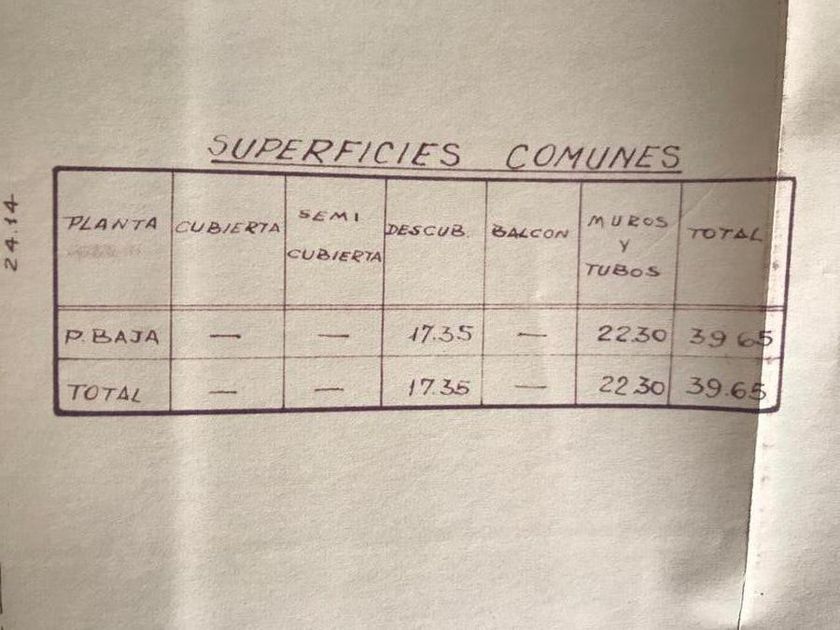 SUPERFICIES COMUNES
24.14
PLANTA CUBIERTA SEMI CUBIERTA DESCUB. BALCON MUROS Y TUBOS TOTAL
P. BAJA — — 17.35 — 22.30 39.65
TOTAL — — 17.35 — 22.30 39.65